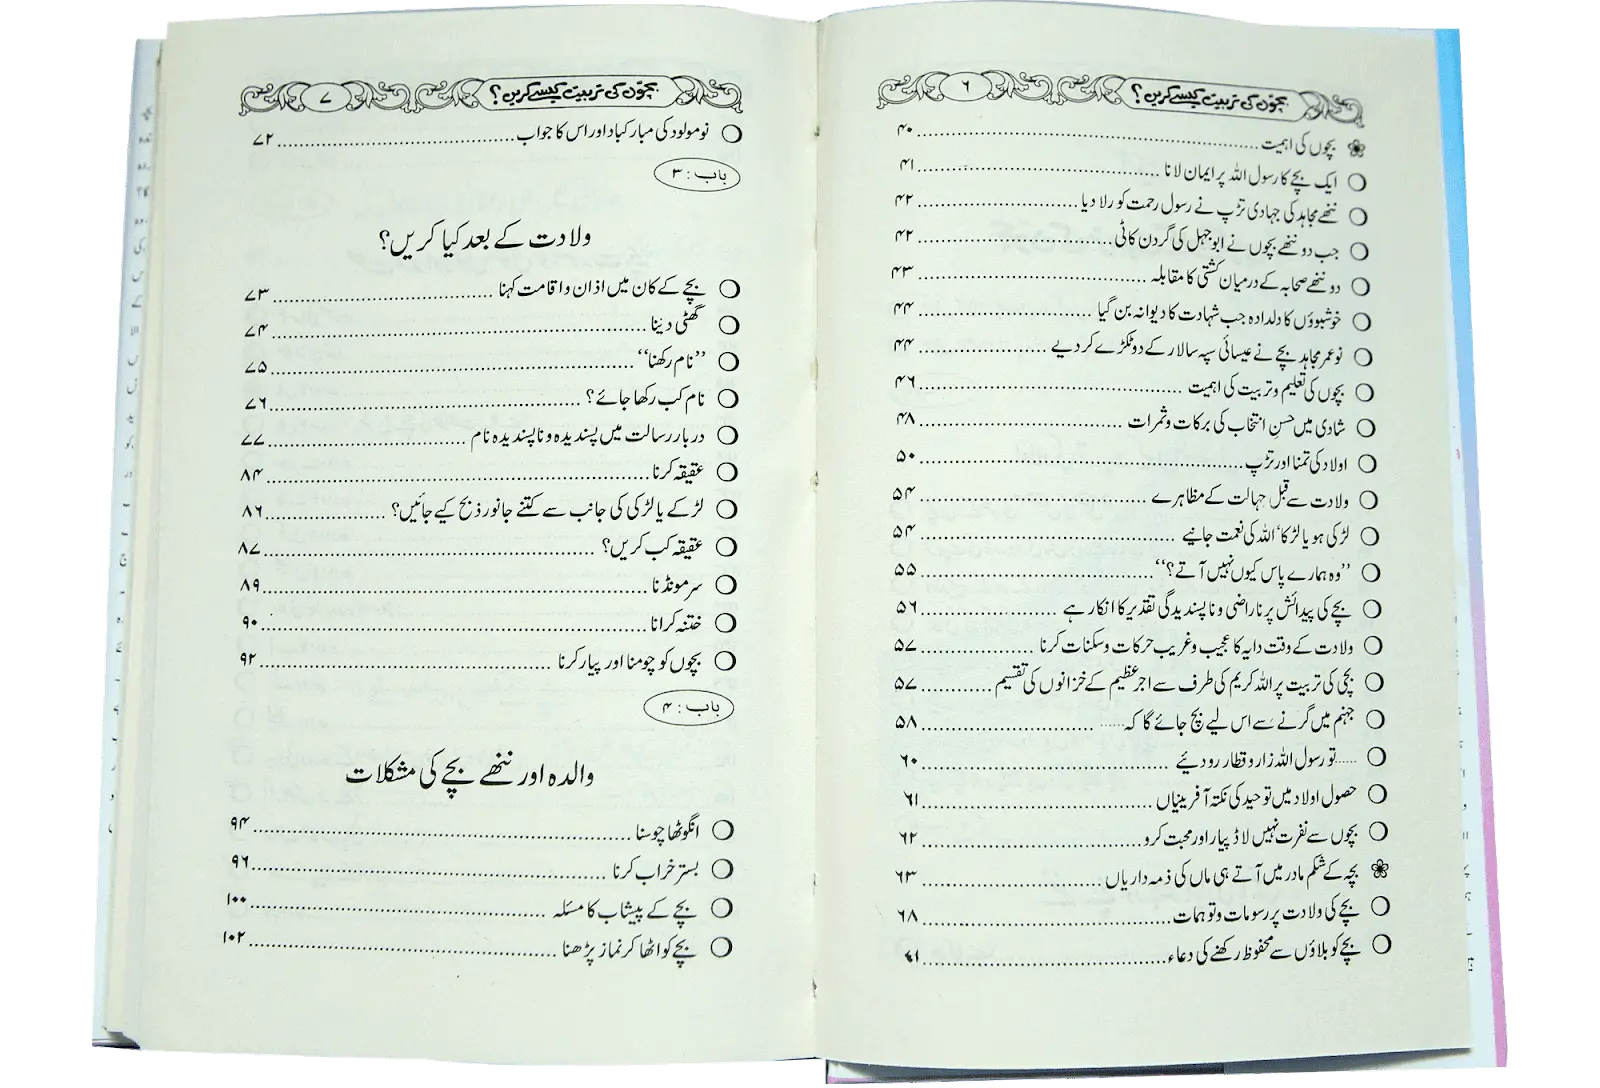 بچّوں کی تربیت کیسے کریں؟ ۶
بچوں کی اہمیت ۴۰
ایک بچے کا رسول اللہ پر ایمان لانا ۴۱
ننھے مجاہد کی جہادی تڑپ نے رسول رحمت کو رلا دیا ۴۲
جب دو ننھے بچوں نے ابو جہل کی گردن کاٹی ۴۲
دو ننھے صحابہ کے درمیان کشتی کا مقابلہ ۴۳
خوشبوؤں کا دلدادہ جب شہادت کا دیوانہ بن گیا ۴۴
نو عمر مجاہد بچے نے عیسائی سپہ سالار کے دو ٹکڑے کر دیے ۴۴
بچوں کی تعلیم و تربیت کی اہمیت ۴۶
شادی میں حسنِ انتخاب کی برکات و ثمرات ۴۸
اولاد کی تمنا اور تڑپ ۵۰
ولادت سے قبل جہالت کے مظاہرے ۵۴
لڑکی ہو یا لڑکا‘ اللہ کی نعمت جانیے ۵۴
’’وہ ہمارے پاس کیوں نہیں آتے؟‘‘ ۵۵
بچے کی پیدائش پر ناراضی و ناپسندیدگی تقدیر کا انکار ہے ۵۶
ولادت کے وقت دایہ کا عجیب و غریب حرکات و سکنات کرنا ۵۷
بچی کی تربیت پر اللہ کریم کی طرف سے اجر عظیم کے خزانوں کی تقسیم ۵۷
جہنم میں گرنے سے اس لیے بچ جائے گا کہ...... ۵۸
......تو رسول اللہ زار و قطار رو دیئے ۶۰
حصول اولاد میں توحید کی نکتہ آفرینیاں ۶۱
بچوں سے نفرت نہیں لاڈ پیار اور محبت کرو ۶۲
بچہ کے شکم مادر میں آتے ہی ماں کی ذمہ داریاں ۶۳
بچے کی ولادت پر رسومات و توہمات ۶۸
بچے کو بلاؤں سے محفوظ رکھنے کی دعاء
بچّوں کی تربیت کیسے کریں؟ ۷
نومولود کی مبارکباد اور اس کا جواب ۷۲
باب : ۳
ولادت کے بعد کیا کریں؟
بچے کے کان میں اذان و اقامت کہنا ۷۳
گھٹی دینا ۷۴
’’نام رکھنا‘‘ ۷۵
نام کب رکھا جائے؟ ۷۶
دربار رسالت میں پسندیدہ و ناپسندیدہ نام ۷۷
عقیقہ کرنا ۸۴
لڑکے یا لڑکی کی جانب سے کتنے جانور ذبح کیے جائیں؟ ۸۶
عقیقہ کب کریں؟ ۸۷
سر مونڈنا ۸۹
ختنہ کرانا ۹۰
بچوں کو چومنا اور پیار کرنا ۹۲
باب : ۴
والدہ اور ننھے بچے کی مشکلات
انگوٹھا چوسنا ۹۴
بستر خراب کرنا ۹۶
بچے کے پیشاب کا مسئلہ ۱۰۰
بچے کو اٹھا کر نماز پڑھنا ۱۰۲